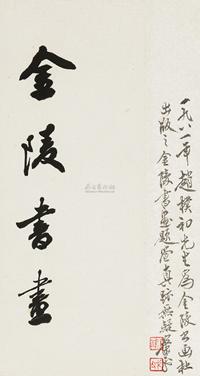 金陵書畫
一九八一年趙樸初先生為金陵書畫社
出版之金陵書畫題簽真跡無疑